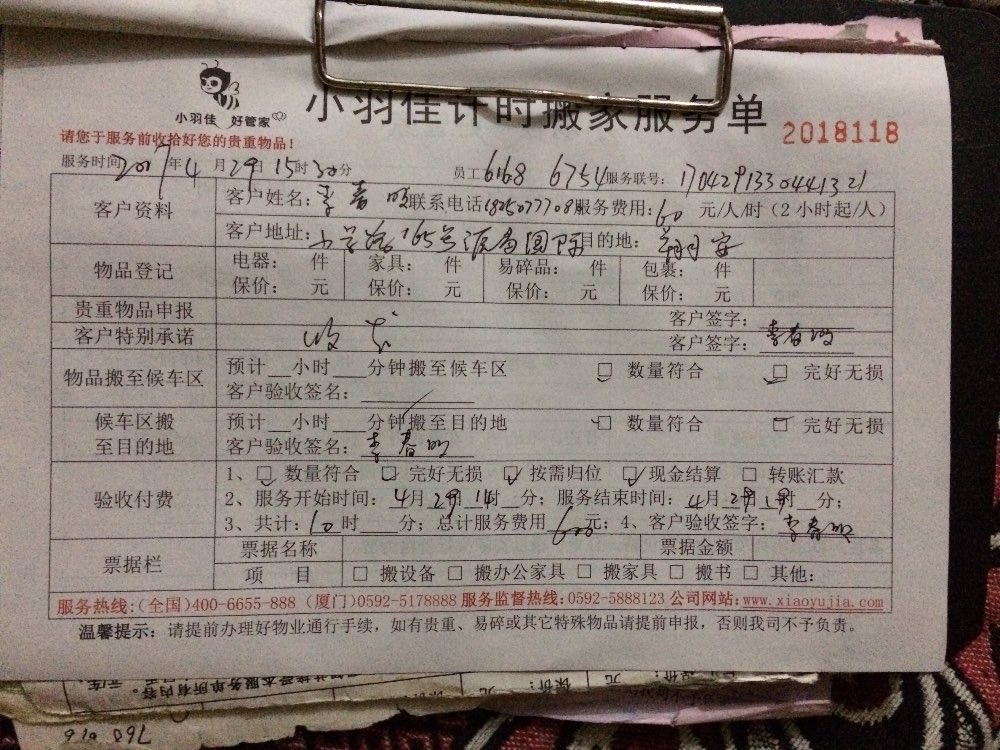 小羽佳 好管家
小羽佳计时搬家服务单
2018118
请您于服务前收拾好您的贵重物品！
服务时间 2017年4月29日15时30分 员工6168 6754 服务联号：1704291330441321
客户资料 客户姓名：李春明 联系电话18250777081服务费用：60 元/人/时（2小时起/人）
客户地址： 165号 国际 目的地：翔安
物品登记 电器： 件 家具： 件 易碎品： 件 包裹： 件
保价： 元 保价： 元 保价： 元 保价： 元
贵重物品申报 客户签字：
客户特别承诺 客户签字：李春明
物品搬至候车区 预计 小时 分钟搬至候车区 □ 数量符合 □ 完好无损
客户验收签名：
候车区搬至目的地 预计 小时 分钟搬至目的地 □ 数量符合 □ 完好无损
客户验收签名：李春明
验收付费 1、□ 数量符合 □ 完好无损 □ 按需归位 □ 现金结算 □ 转账汇款
2、服务开始时间：4月29日14时 分；服务结束时间：4月29日19时 分；
3、共计：10时 分；总计服务费用600元；4、客户验收签字：李春明
票据栏 票据名称 票据金额
项 目 □ 搬设备 □ 搬办公家具 □ 搬家具 □ 搬书 □ 其他：
服务热线：(全国)400-6655-888 (厦门)0592-5178888 服务监督热线：0592-5888123 公司网站：www.xiaoyujia.com
温馨提示：请提前办理好物业通行手续，如有贵重、易碎或其它特殊物品请提前申报，否则我司不予负责。